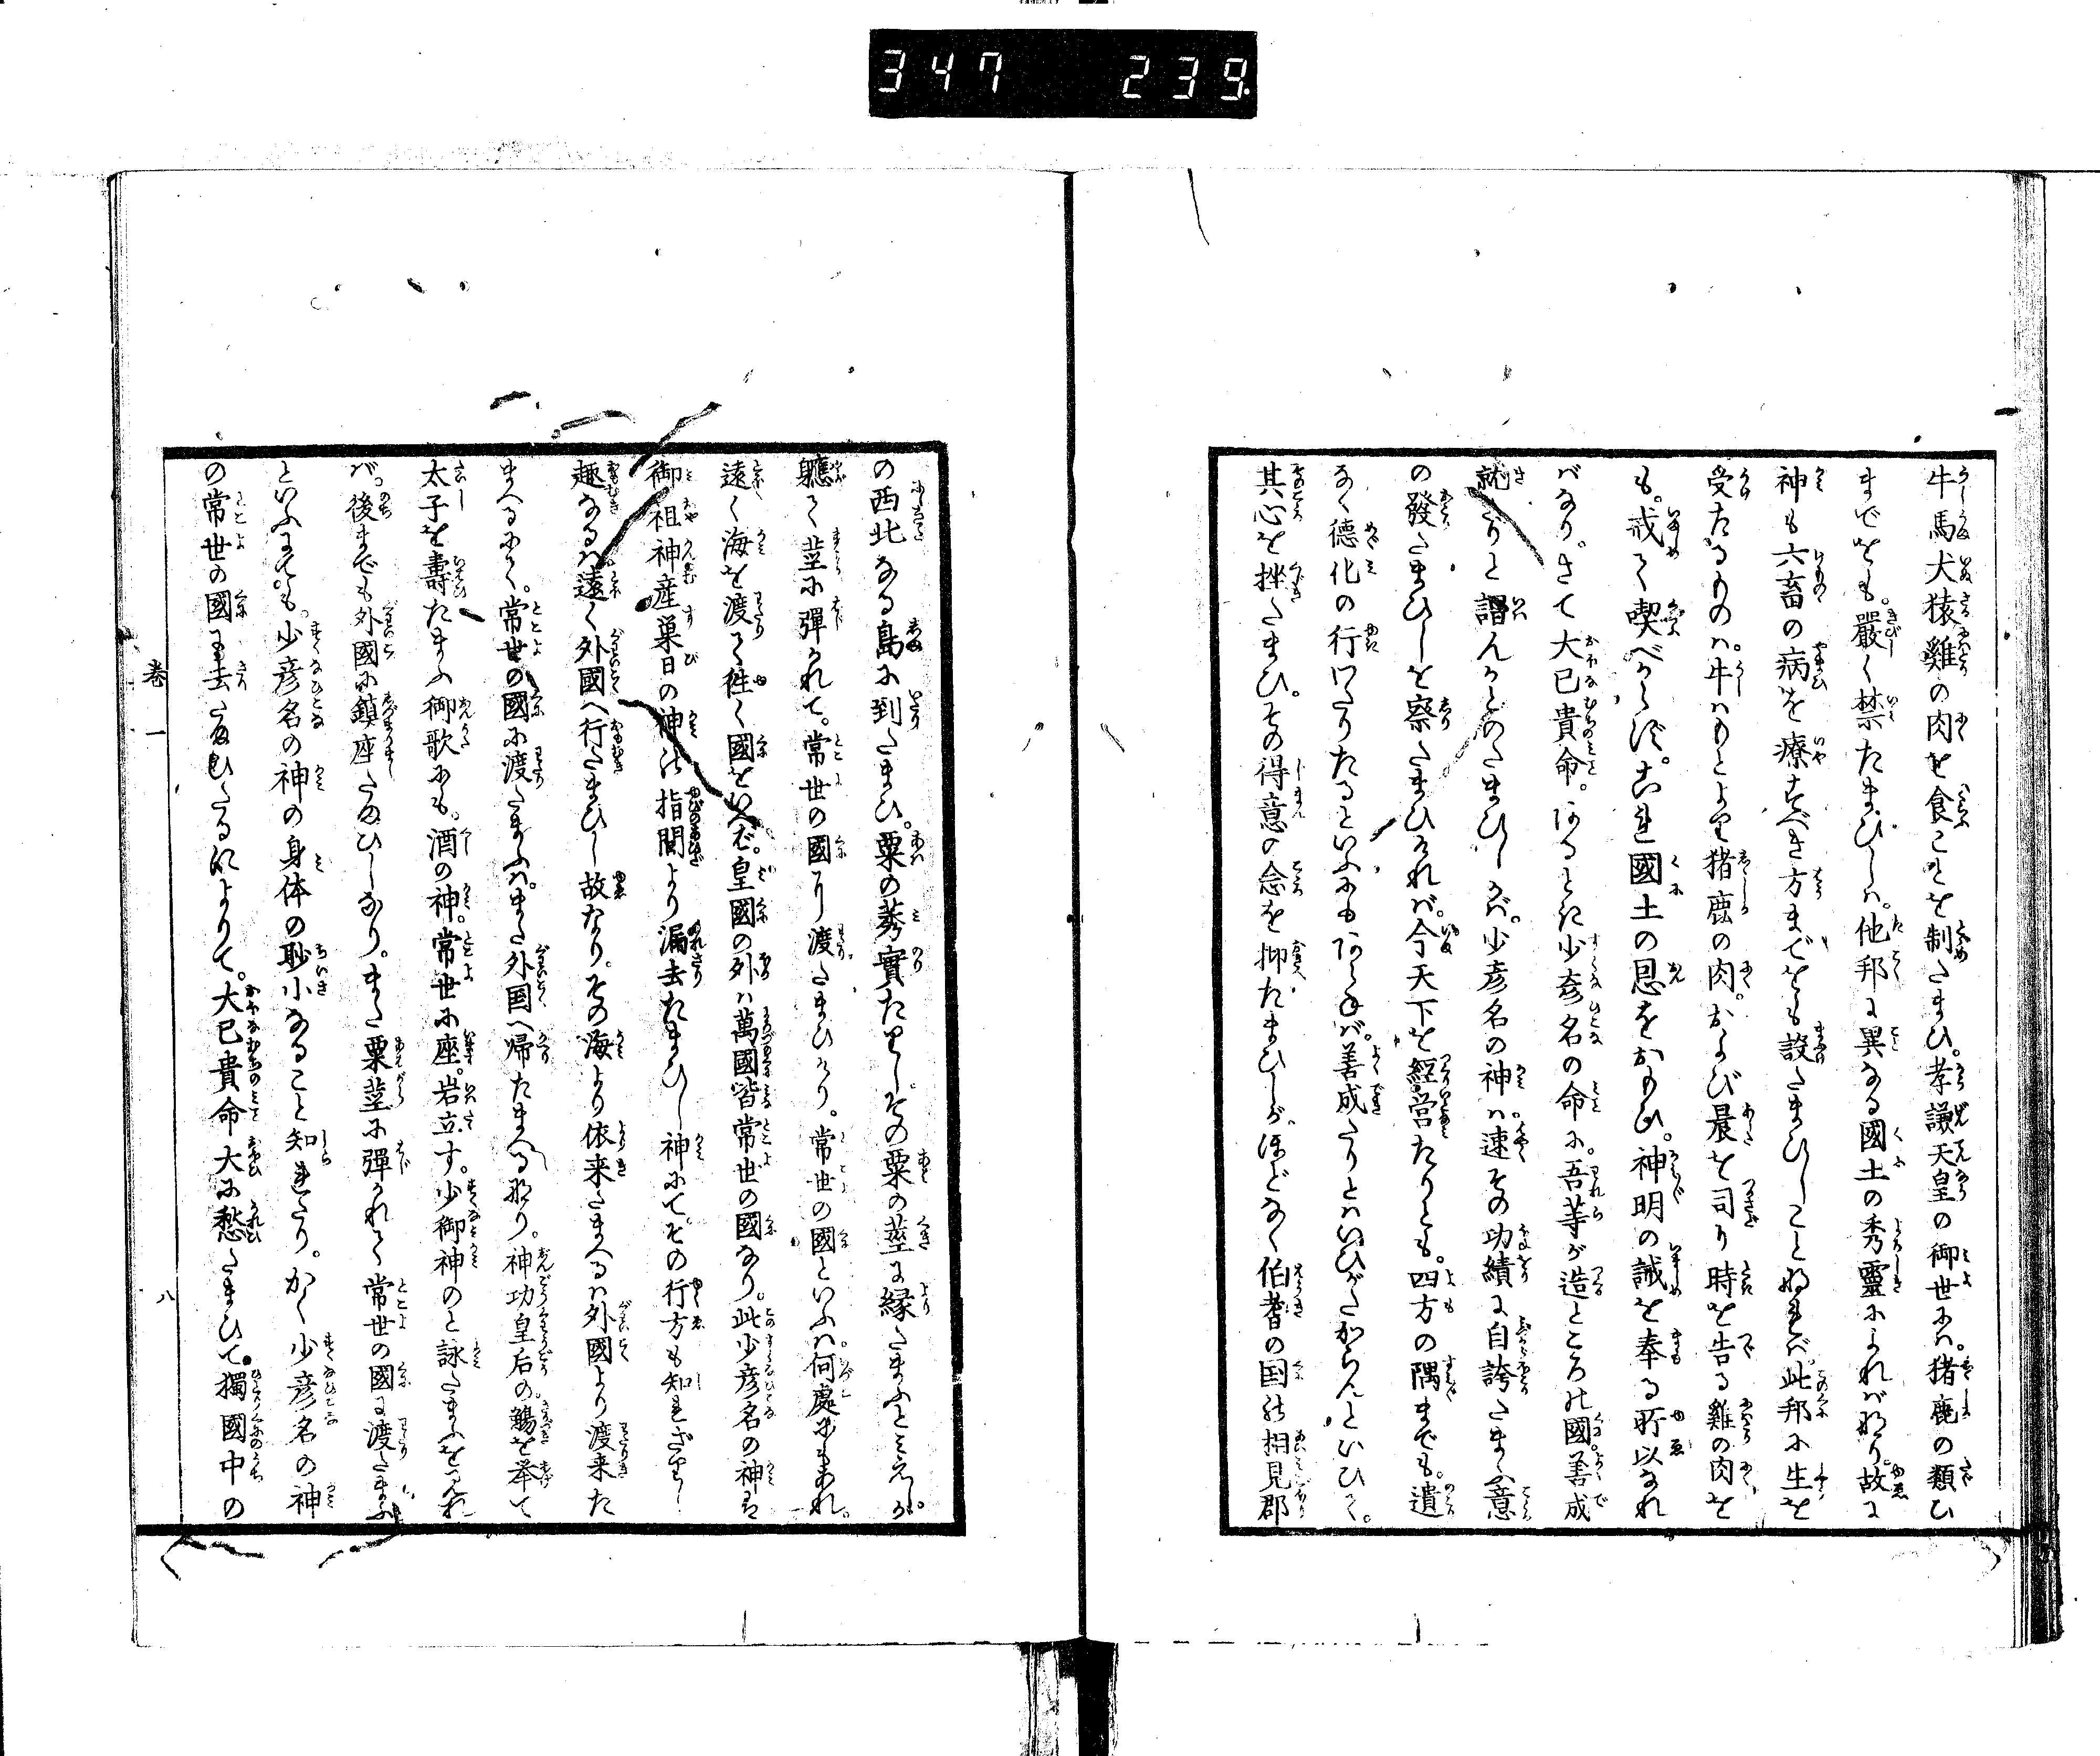 347 239.
牛馬犬猿雞の肉を食ことを制たまひ。孝謙天皇の御世には。猪鹿の類ひ
までをも。嚴く禁たまひしは。他邦に異なる國土の秀靈によればなり。故に
神も六畜の病を療すべき方までをも設たまひしことなれば。此邦に生を
受たるものは。牛はもとより猪鹿の肉。および晨を司り時を告る雞の肉を
も。戒て喫べからず。これ國土の恩をおもひ。神明の誡を奉る所以なれ
ばなり。さて大己貴命。あるときに少彦名の命に。吾等が造ところの國。善成
就りと謂んかとのたまひしかば。少彦名の神は。速その功績に自誇たまふ意
の發たまひしを察たまひければ。今天下を經営たりとも。四方の隅までも。遺
なく德化の行わたりたるといふにもあらねば。善成たりとはいひがたからんといひて。
其心を挫たまひ。その得意の念を抑たまひしが。ほどなく伯耆の国の相見郡
の西北なる島に到たまひ。粟の莠實たりしその粟の莖に縁たまふとみえしが。
軈て莖に彈かれて。常世の國に渡たまひけり。常世の國といふは。何處にもあれ。
遠く海を渡て徃く國をいへば。皇國の外は萬國皆常世の國なり。此少彦名の神は
御祖神産巣日の神の指間より漏去たまひし神にて。その行方も知れざりし
趣なるは。遠く外國へ行たまひし故なり。その海より依来たまへるは外國より渡来た
まへるにて。常世の國に渡たまふは。また外国へ帰たまへるなり。神功皇后の觴を举て
太子を壽たまふ御歌にも。酒の神。常世に座。岩立す。少御神のと詠たまふをみれ
ば。後までも外國に鎮座たまひしなり。また粟莖に彈かれて常世の國に渡たまふ
といふにても。少彦名の神の身体の眇小なること知れたり。かく少彦名の神
の常世の國に去たまひたるによりて。大己貴命大に愁たまひて。獨國中の
卷一
八